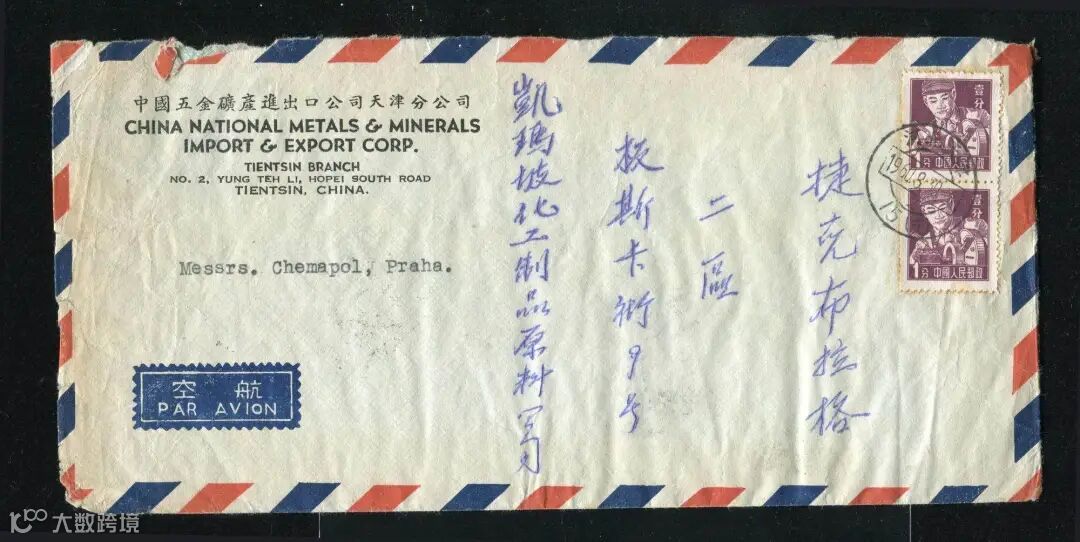 中國五金礦產進出口公司天津分公司
CHINA NATIONAL METALS & MINERALS
IMPORT & EXPORT CORP.
TIENTSIN BRANCH
NO. 2, YUNG TEH LI, HOPEI SOUTH ROAD
TIENTSIN, CHINA.
Messrs. Chemapol, Praha.
空航
PAR AVION
捷克布拉格
二區
板斯卡街9号
凱瑪坡化工制品原料公司
壹分
1分 中國人民郵政
壹分
1分 中國人民郵政
15
大数跨境